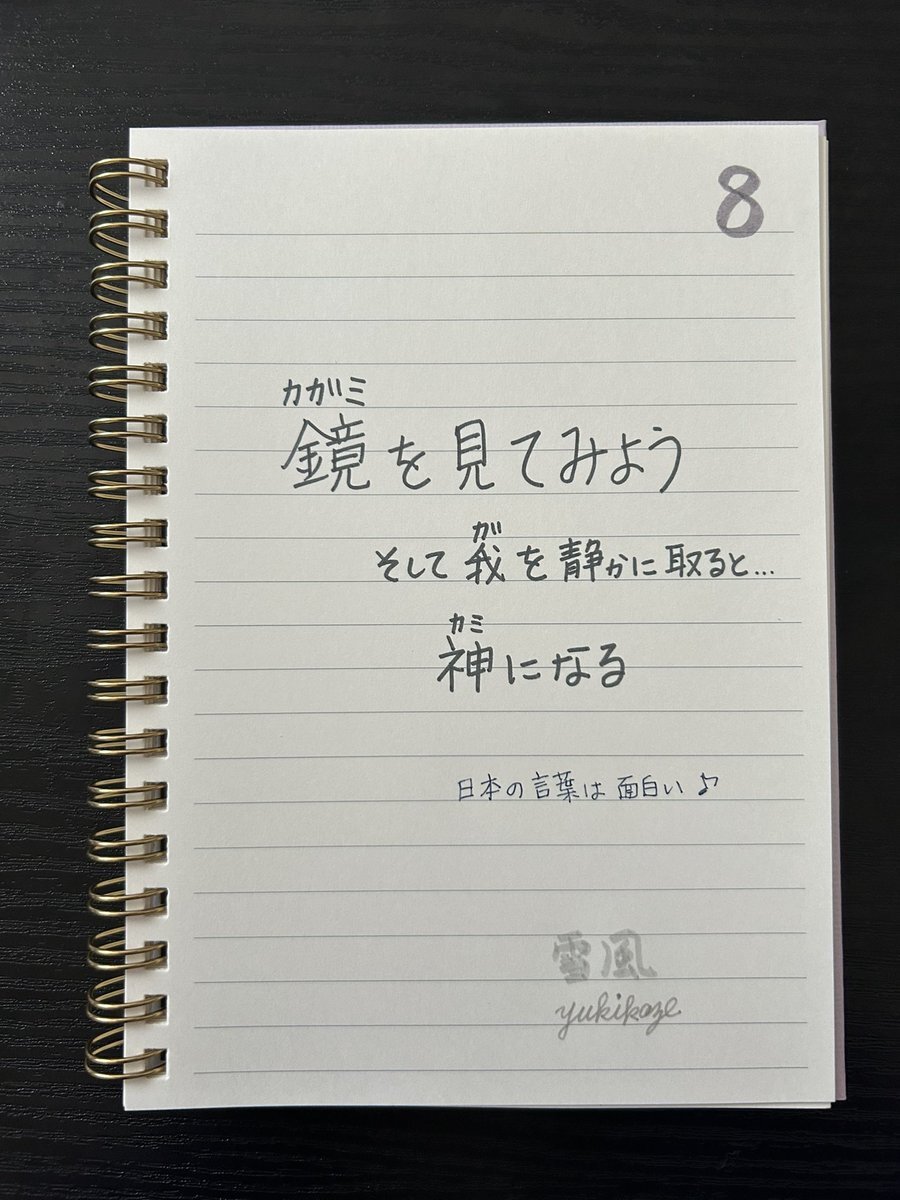 8
カガミ
鏡を見てみよう
ガ
そして我を静かに取ると...
カミ
神になる
日本の言葉は面白い♪
雪風
yukikaze